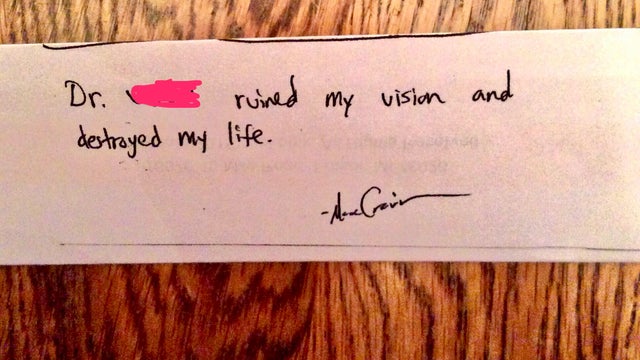 Dr. ruined my vision and
destroyed my life.